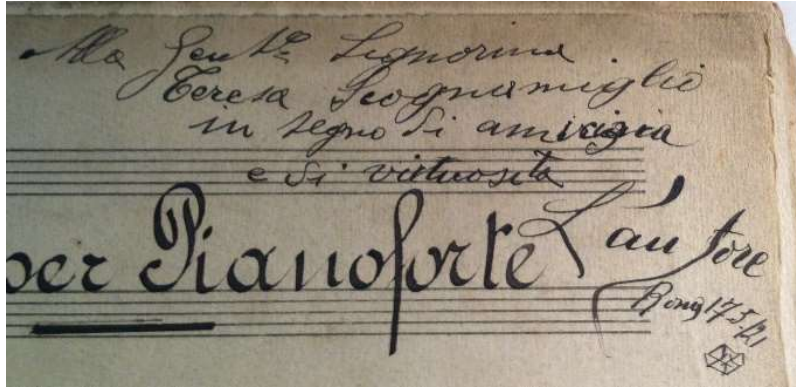 Alla Gent.ma Signorina
Teresa Scognamiglio
in segno di amicizia
e di virtuosità
per Pianoforte
L'autore
Roma 17.5.21